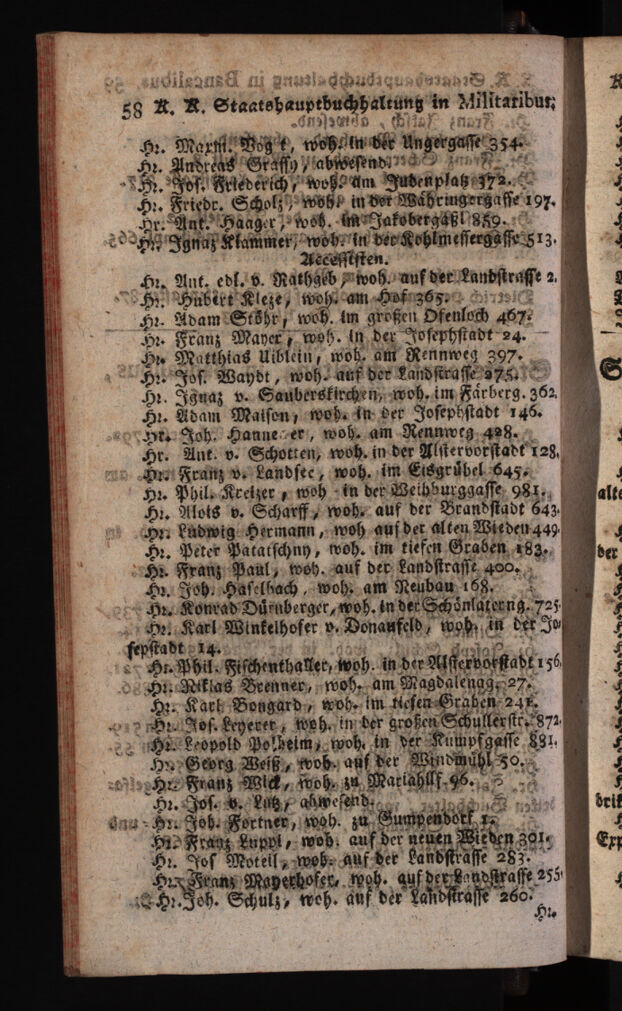 58 K. K. Staatshauptbuchhaltung in Militaribus,
Hr. Maxm. Vogt, woh. in der Ungergasse 354.
Hr. Andreas Grassy, abwesend.
Hr. Jos. Friederich, woh. am Judenplatz 372.
Hr. Friedr. Scholz, woh. in der Währingergasse 197.
Hr. Ant. Haager, woh. im Jakobergäßl 859.
Hr. Ignaz Klammer, woh. in der Kohlmessergasse 513.
Accessisten.
Hr. Ant. edl. v. Rathgeb, woh. auf der Landstrasse 2.
Hr. Hubert Kleze, woh. am Hof 365.
Hr. Adam Stöhr, woh. im großen Ofenloch 467.
Hr. Franz Mayer, woh. in der Josephstadt 24.
Hr. Matthias Uiblein, woh. am Rennweg 397.
Hr. Jos. Waydt, woh. auf der Landstrasse 275.
Hr. Ignaz v. Sauberskirchen, woh. im Färberg. 362.
Hr. Adam Maison, woh. in der Josephstadt 146.
Hr. Joh. woh. am Rennweg 428.
Hr. Ant. v. Schotten, woh. in der Alstervorstadt 128.
Hr. Franz v. Landsee, woh. im Eisgrübel 645.
Hr. Phil. Kreizer, woh in der Weihburggasse 981.
Hr. Alois v. Scharff, woh. auf der Brandstadt 643.
Hr. Ludwig Hermann, woh auf der alten Wieden 449.
Hr. Peter Patatschny, woh. im tiefen Graben 183.
Hr. Franz Paul, woh. auf der Landstrasse 400.
Hr. Joh. Haselbach, woh. am Neubau 168.
Hr. Konrad Dürnberger, woh. in der Schönlaterng. 725.
Hr. Karl Winkelhofer v. Donaufeld, woh. in der Jo-
sepstadt 14.
Hr. Phil. Fischenthaller, woh. in der Alstervorstadt 156.
Hr. Niklas Brenner, woh. am Magdalengg. 27.
Hr. Karl Bongard, woh. im tiefen Graben 241.
Hr. Jos. Leyerer, woh. in der großen Schullerstr. 872.
Hr. Leopold Polheim, woh. in der Kumpfgasse 881.
Hr. Georg Weiß, woh. auf der Windmühl 50.
Hr. Franz Wick, woh. zu Mariahilf 96.
Hr. Jos. v. Lutz, abwesend.
Hr. Joh. Fortner, woh. zu Gumpendorf 1.
Hr. Franz Luppi, woh. auf der neuen Wieden 301.
Hr. Jos Moteil, woh. auf der Landstrasse 283.
Hr. Franz Mayerhofer, woh. auf der Landstrasse 255.
Hr. Joh. Schulz, woh. auf der Landstrasse 260.
Hr.